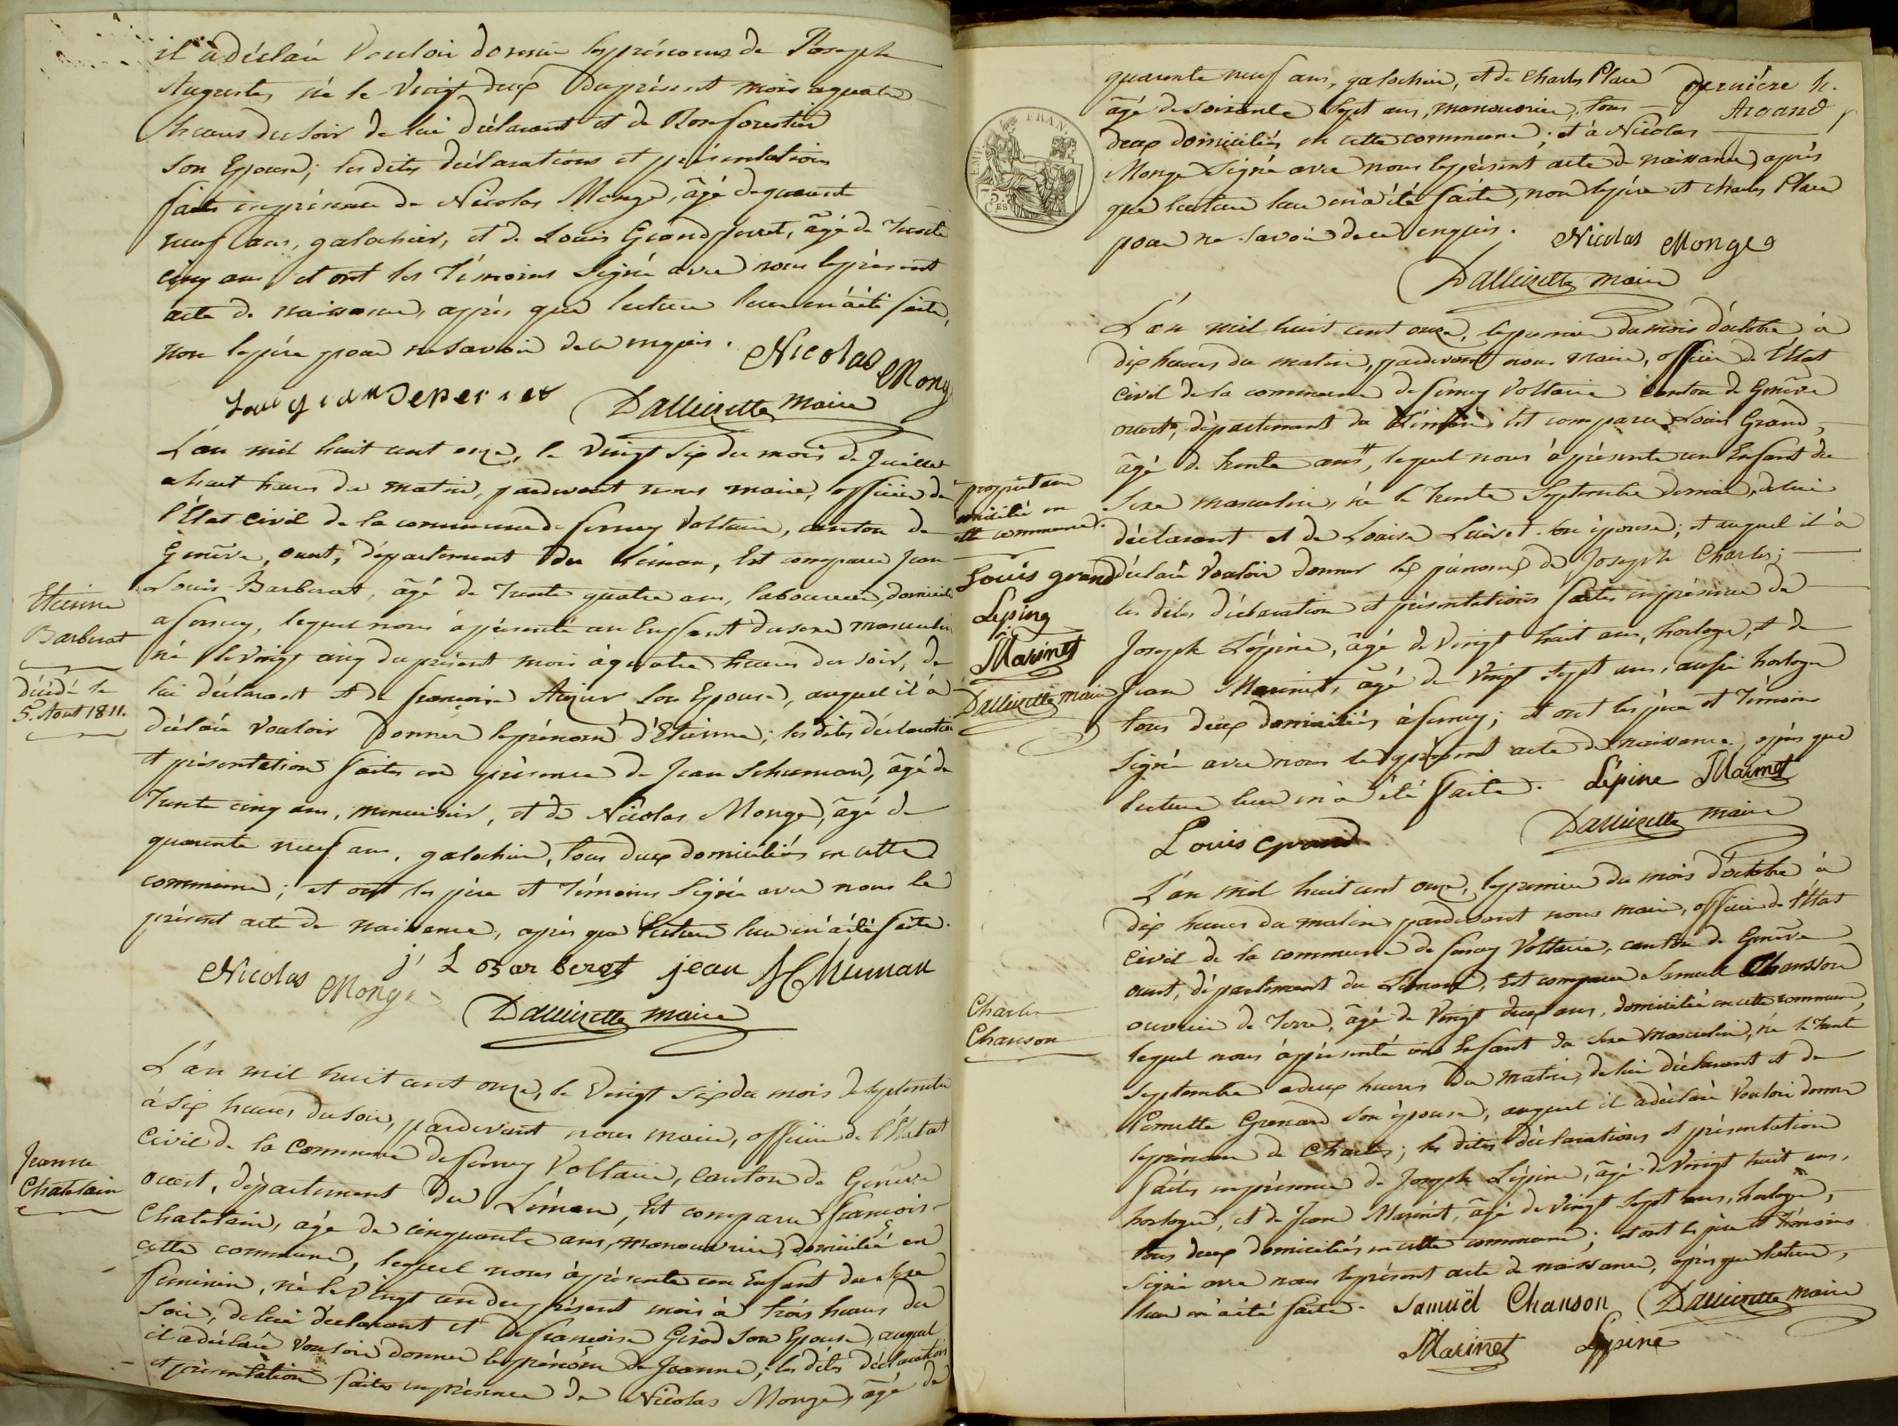 il a déclaré vouloir donner les prénoms de Joseph
Auguste, né le vingt deux du présent mois a quatre
heures du soir de lui déclarant et de Rose forestier
son Epouse; les dites déclarations et présentations
faites en présence de Nicolas Monge, âgé de quarante
neuf ans, galochier, et de Louis Grandperret, âgé de Trente
cinq ans et ont les Témoins Signé avec nous le présent
acte de naissance, après que lecture leur en a été faite,
non le père pour ne savoir de ce enquis. Nicolas Monge
Louis grandeperret Dallizette maire
L'an mil huit cent onze, le vingt six du mois de Juillet
a huit heures du matin, pardevant nous maire, officier de
l'État civil de la commune de ferney Voltaire, canton de
Genêve, ouest, département du Léman, Est comparu Jean
Louis Barberat, âgé de Trente quatre ans, laboureur, domicilié
Etienne
Barberat
décédé le
5. Aout 1811.
a ferney, lequel nous a présenté un Enfant du sexe masculin
né le vingt cinq du présent mois à quatre heures du soir, de
lui déclarant et de françoise son Epouse, auquel il a
déclaré vouloir donner le prénom d'Etienne; les dites déclaration
et présentation faites en présence de Jean Schuman, âgé de
Trente cinq ans, menuisier, et de Nicolas Monge, âgé de
quarante neuf ans, galochier, tous deux domiciliés en cette
commune; et ont les père et Témoins Signé avec nous le
présent acte de naissance, après que lecture leur en a été faite.
Nicolas Monge j L Barberat jean SChuman
Dallizette maire
L'an mil huit cent onze, le vingt six du mois de Septembre
à six heures du soir, pardevant nous maire, officier de l'Etat
Civil de la Commune de ferney Voltaire, canton de Genêve
Jeanne
Chatelain
ouest, département du Léman, Est comparu françois
Chatelain, âgé de cinquante ans, manouvrier, domicilié en
cette commune, lequel nous a présenté un Enfant du sexe
féminin, né le vingt un du présent mois à trois heures du
soir, de lui déclarant et de françoise Girod son Epouse, auquel
il a déclaré vouloir donner le prénom de Jeanne; les dites déclaration
et présentation faites en présence de Nicolas Monge, âgé de
quarante neuf ans, galochier, et de Charles Place
âgé de soixante Sept ans, manouvrier, tous
deux domiciliés en cette commune; et à Nicolas
Monge Signé avec nous le présent acte de naissance, après
que lecture leur en a été faite, non le père et Charles Place
pour ne savoir de ce enquis.
dernière h.
Argand
EMP. FRAN.
Nicolas Monge
Dallizette maire
L'an mil huit cent onze, le premier du mois d'octobre à
dix heures du matin, pardevant nous maire, officier de l'Etat
Civil de la commune de ferney Voltaire canton de Genêve
ouest, département du Léman Est comparu Louis Grand,
âgé de trente ans, lequel nous a présenté un Enfant du
Sexe masculin, né le trente Septembre dernier, de lui
déclarant et de Louise son épouse; et auquel il à
déclaré vouloir donner les prénoms de Joseph Charles;
les dites déclaration et présentations faites en présence de
Joseph Lépine, âgé de vingt huit ans, horloger, et de
Jean Marinet, âgé de vingt sept ans, aussi horloger
tous deux domiciliés à ferney; et ont les père et Témoins
Signé avec nous le présent acte de naissance, après que
lecture leur en a été faite. Lépine Marinet
Louis Grand Dallizette maire
propriétaire
domicilié en
cette commune.
Louis grand
Lepine
Marinet
Dallizette maire
L'an mil huit cent onze, le premier du mois d'octobre à
dix heures du matin, pardevant nous maire, officier de l'Etat
Civil de la commune de ferney Voltaire, canton de Genêve
ouest, département du Léman, Est comparu Samuel Chanson
Charles
Chanson
ouvrier de Terre, âgé de vingt deux ans, domicilié en cette commune,
lequel nous a présenté un Enfant du sexe Masculin, né le trente
Septembre a deux heures du matin, de lui déclarant et de
Pernette son épouse, auquel il a déclaré vouloir donner
le prénom de Charles; les dites déclarations et présentation
faites en présence de Joseph Lépine, âgé de vingt huit ans,
horloger, et de Jean Marinet, âgé de vingt sept ans, horloger,
tous deux domiciliés en cette commune; et ont le père et Témoins
signé avec nous le présent acte de naissance, après que lecture,
leur en a été faite. Samuël Chanson Dallizette maire
Marinet Lépine